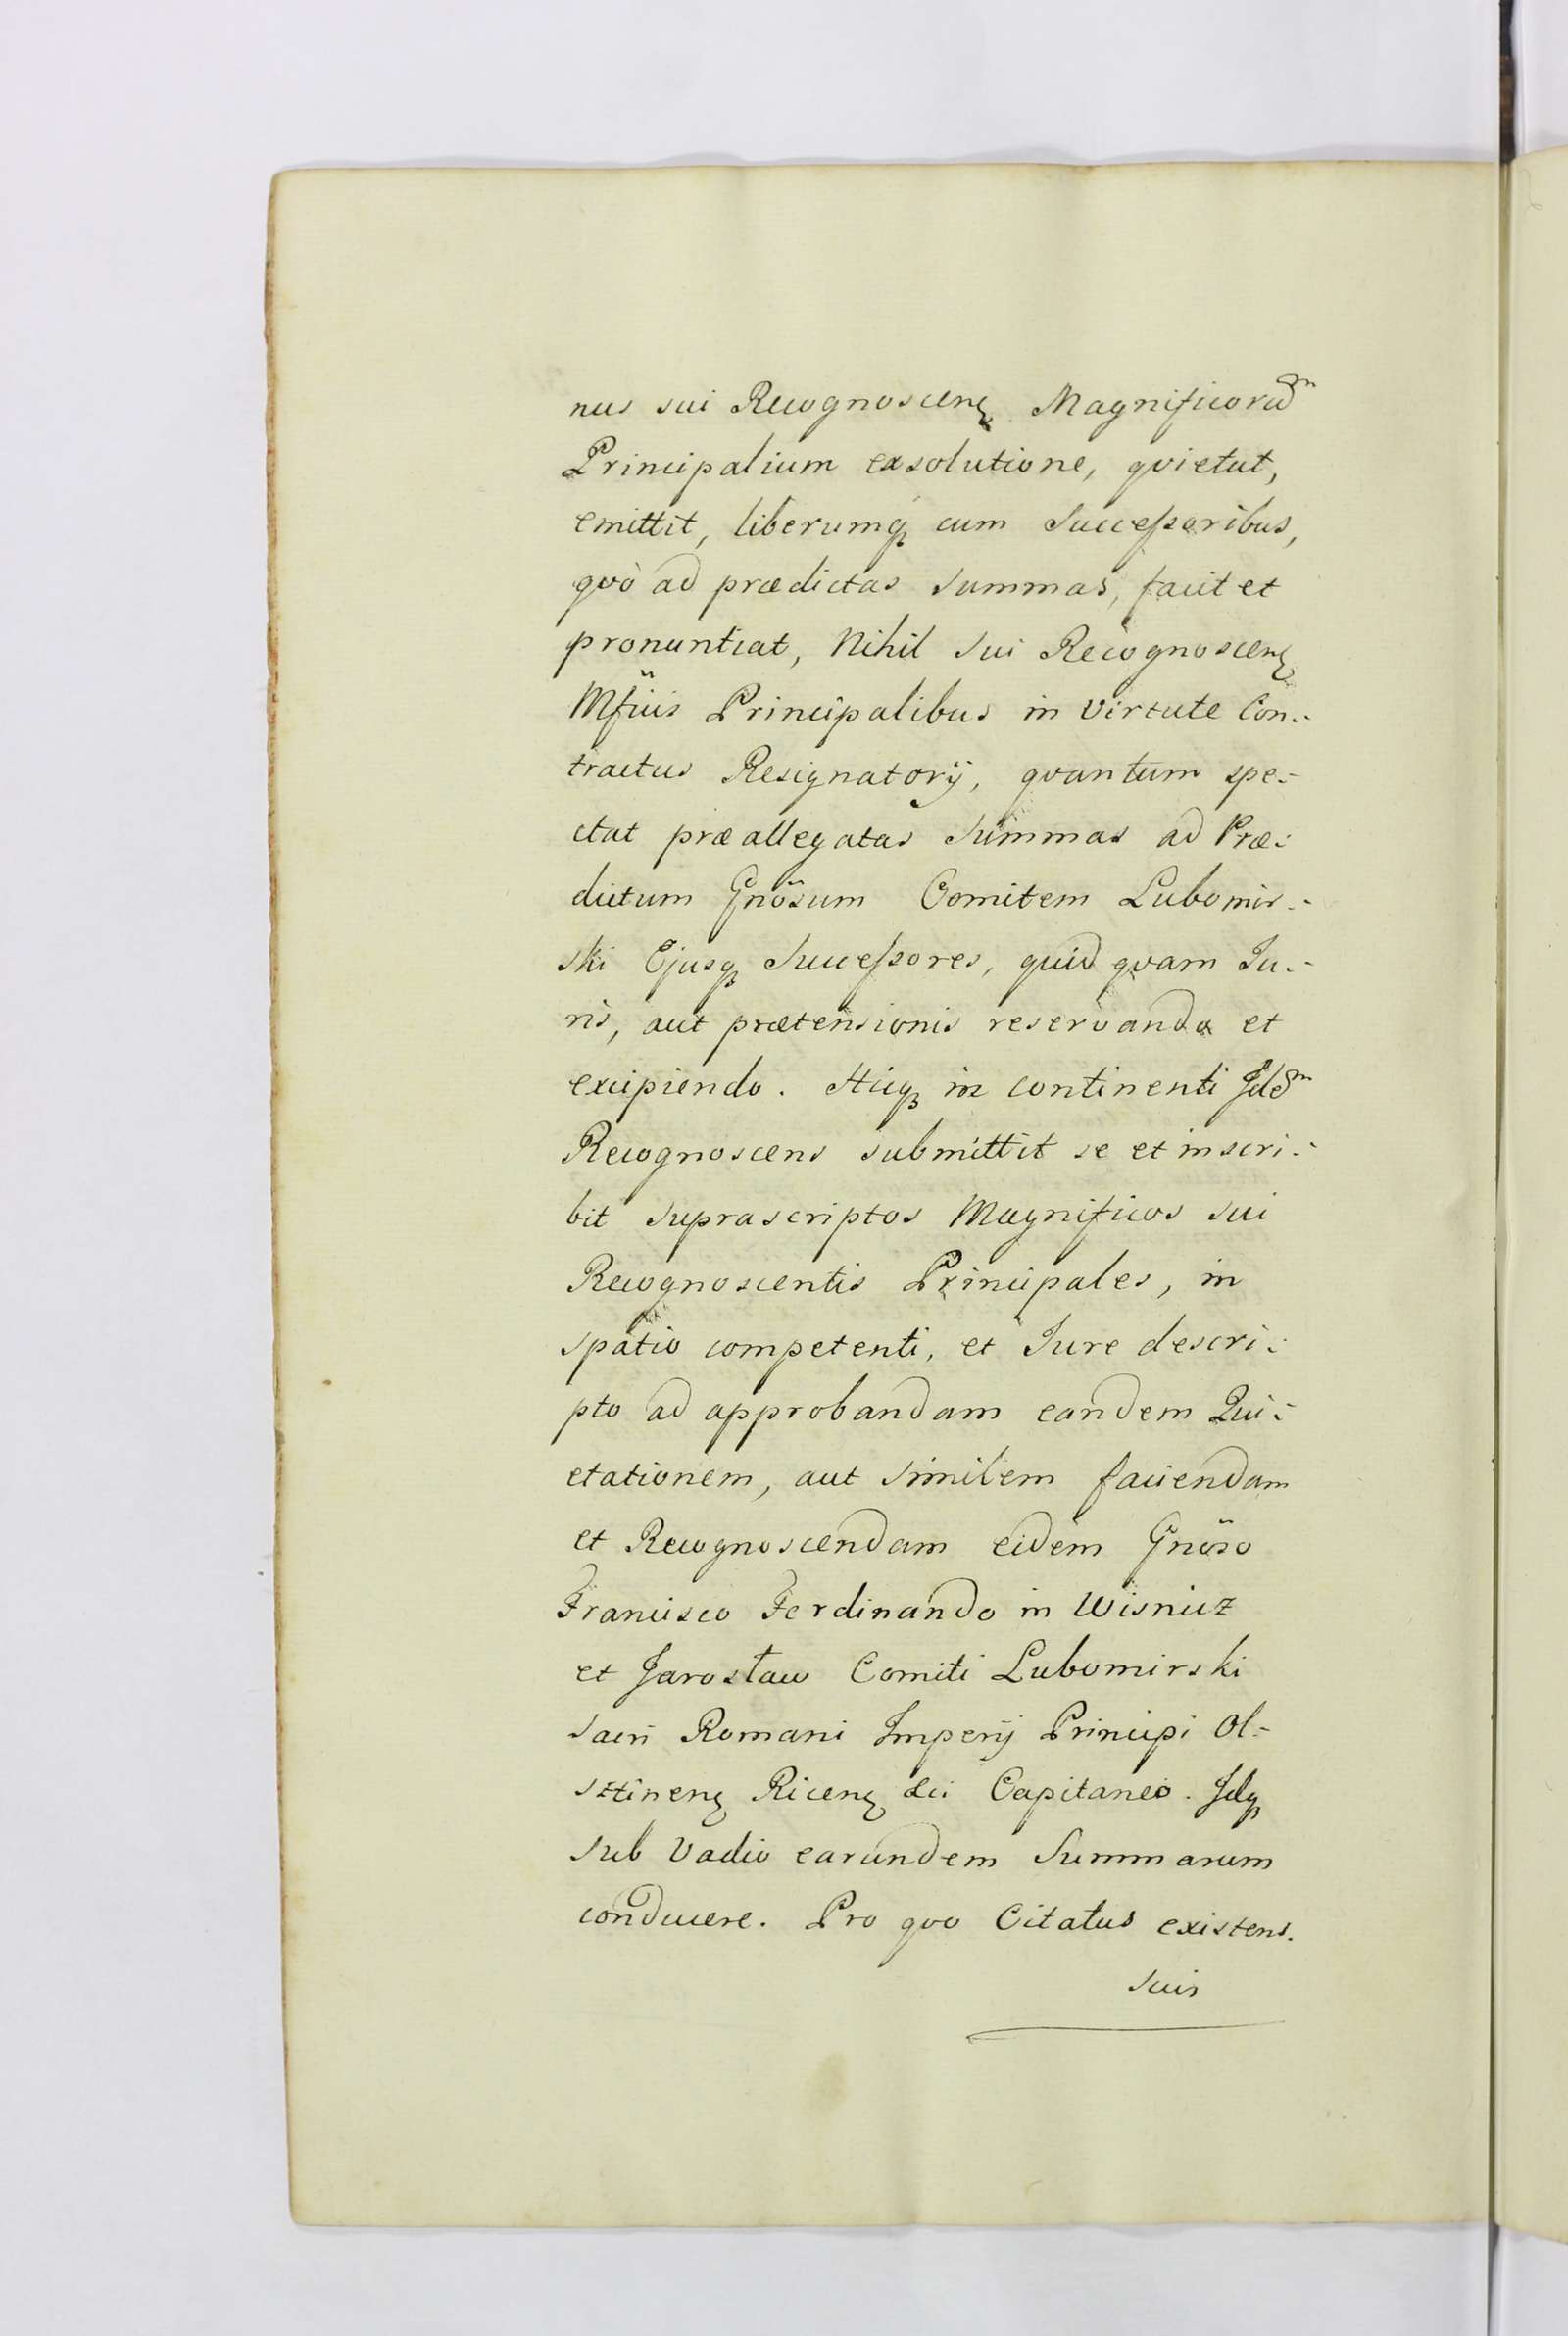 nus sui Recognoscenꝫ Magnificorũm
Principalium exsolutione, qvietat,
emittit, liberumqꝫ cum Succeſsoribus,
qvò ad prædictas Summas, facit et
pronuntiat, Nihil Sui Recognoscenꝫ
Mfi͠cis Principalibus in Virtute Con-
tractus Resignatorij, qvantum spe-
ctat præallegatas Summas ad Præ-
dictum Gno͠sum Comitem Lubomir-
ski Ejusqꝫ Succeſsores, quid qvam Ju-
ris, aut prætensionis reservando et
excipiendo. Hicqꝫ in continenti Idem
Recognoscens submittit se et inscri-
bit Suprascriptos Magnificos sui
Recognoscentis Principales, in
spatio competenti, et Jure descri-
pto ad approbandam eandem Qui-
etationem, aut Similem faciendam
et Recognoscendam eidem Gno͠so
Francisco Ferdinando in Wisnicz
et Jarosław Comiti Lubomirski
Sacri Romani Imperij Principi Ol-
sztinenꝫ Ricenꝫ &ci Capitaneo. Idqꝫ
Sub Vadio earundem Summarum
conducere. Pro qvo Citatus existens.
Suis